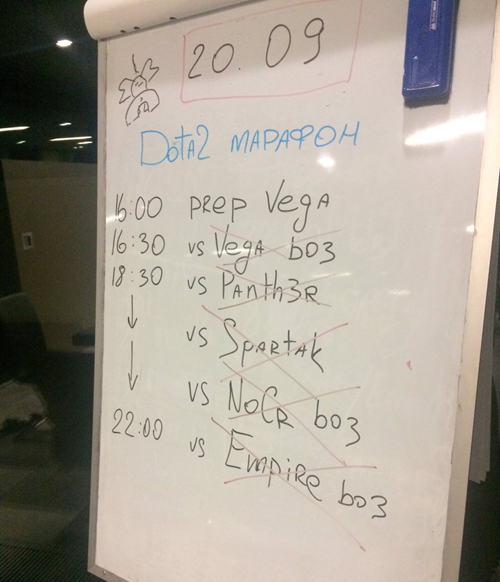 20.09
Dota2 МАРАФОН
16:00 prep Vega
16:30 vs Vega bo3
18:30 vs Panth3r
vs Spartak
vs NoCr bo3
22:00 vs Empire bo3